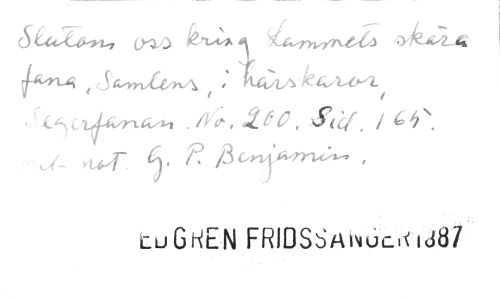 Slutom oss kring Lammets skära
fana, Samlens, i härskaror,
Segerfanan. No. 200. Sid. 165.
not. G. P. Benjamin.
EDGREN FRIDSSÅNGER 1887